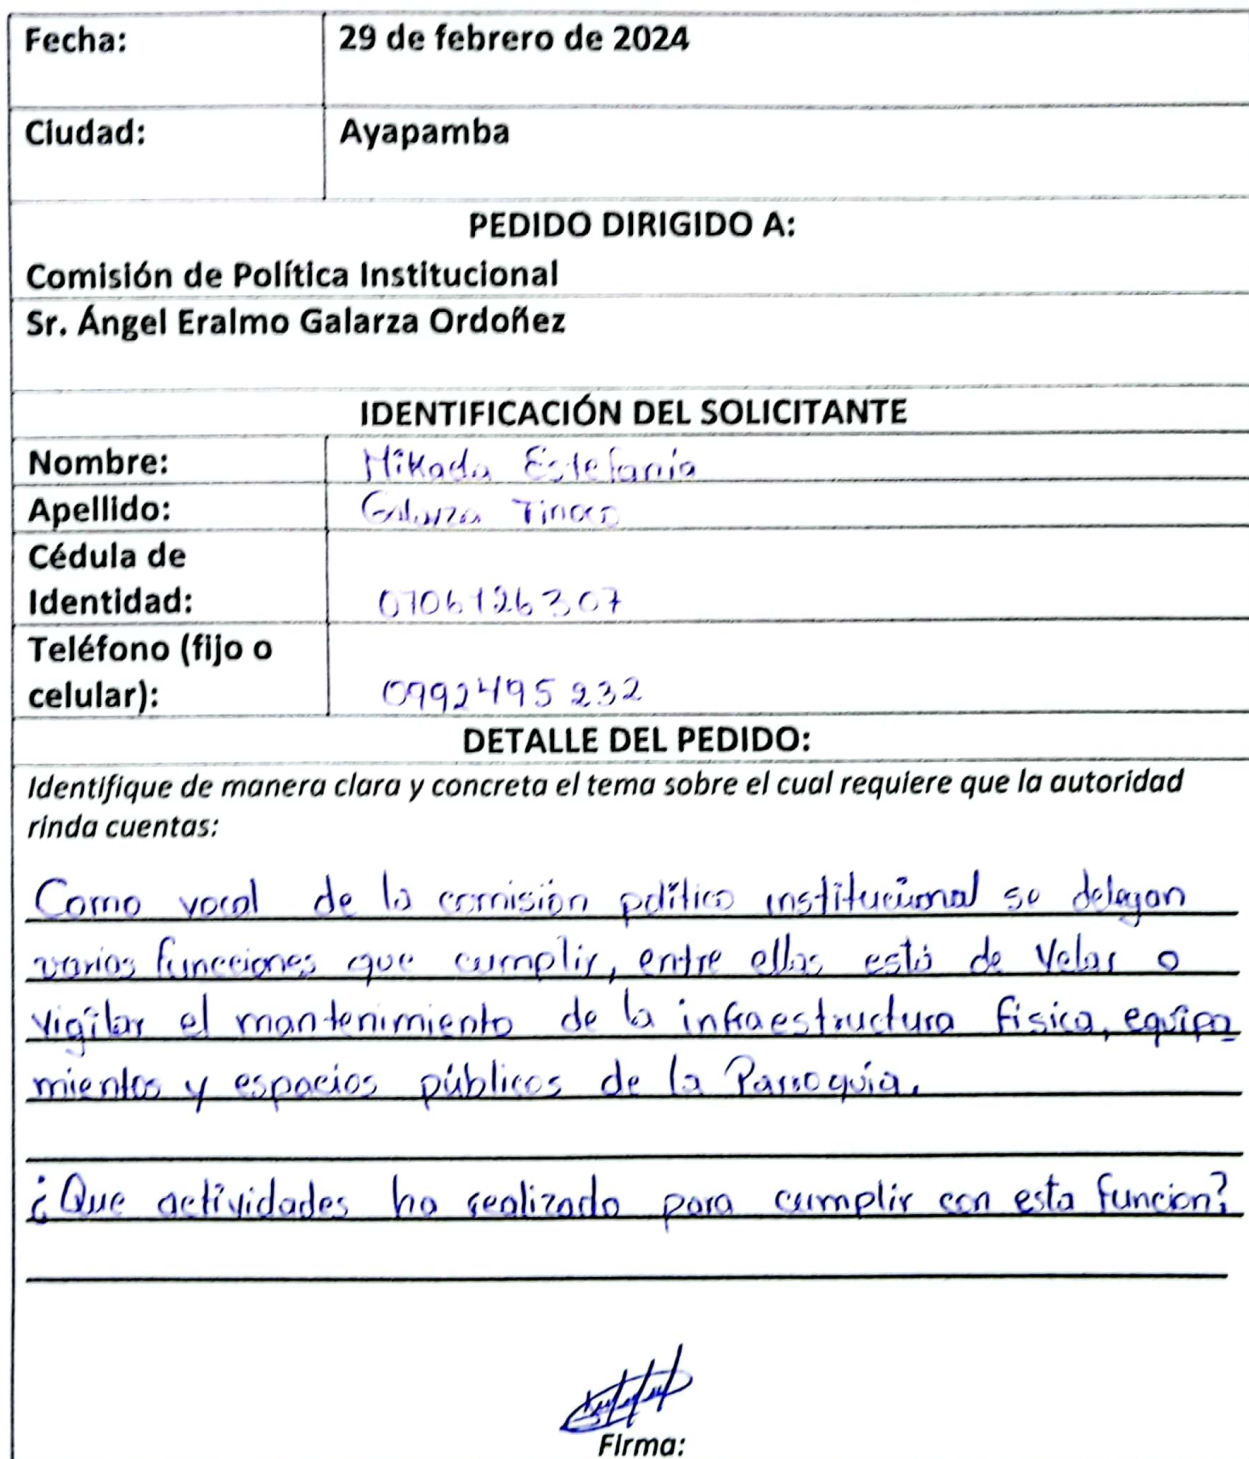 Fecha: 29 de febrero de 2024
Ciudad: Ayapamba
PEDIDO DIRIGIDO A:
Comisión de Política Institucional
Sr. Ángel Eralmo Galarza Ordoñez
IDENTIFICACIÓN DEL SOLICITANTE
Nombre: Mikada Estefanía
Apellido: Galarza Tinoco
Cédula de
Identidad: 0706126307
Teléfono (fijo o
celular): 0992495232
DETALLE DEL PEDIDO:
Identifique de manera clara y concreta el tema sobre el cual requiere que la autoridad
rinda cuentas:
Como vocal de la comisión político institucional se delegan
varias funcciones que cumplir, entre ellas está de Velar o
vigilar el mantenimiento de la infraestructura física, equipa
mientos y espacios públicos de la Parroquia.
¿Que actividades ha realizado para cumplir con esta funcion?
Firma: